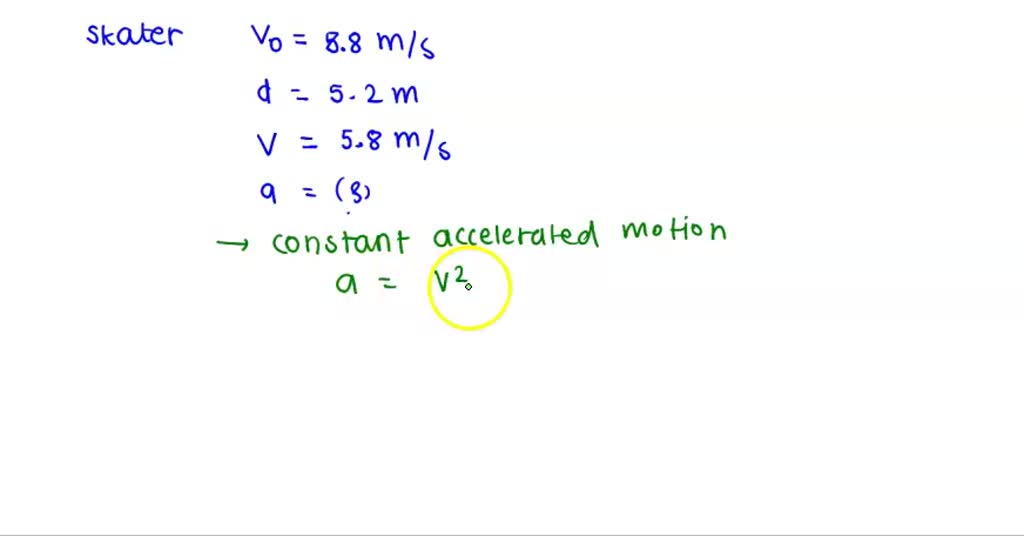 skater V₀ = 8.8 m/s
d = 5.2 m
V = 5.8 m/s
a = (?)
→ constant accelerated motion
a = V²